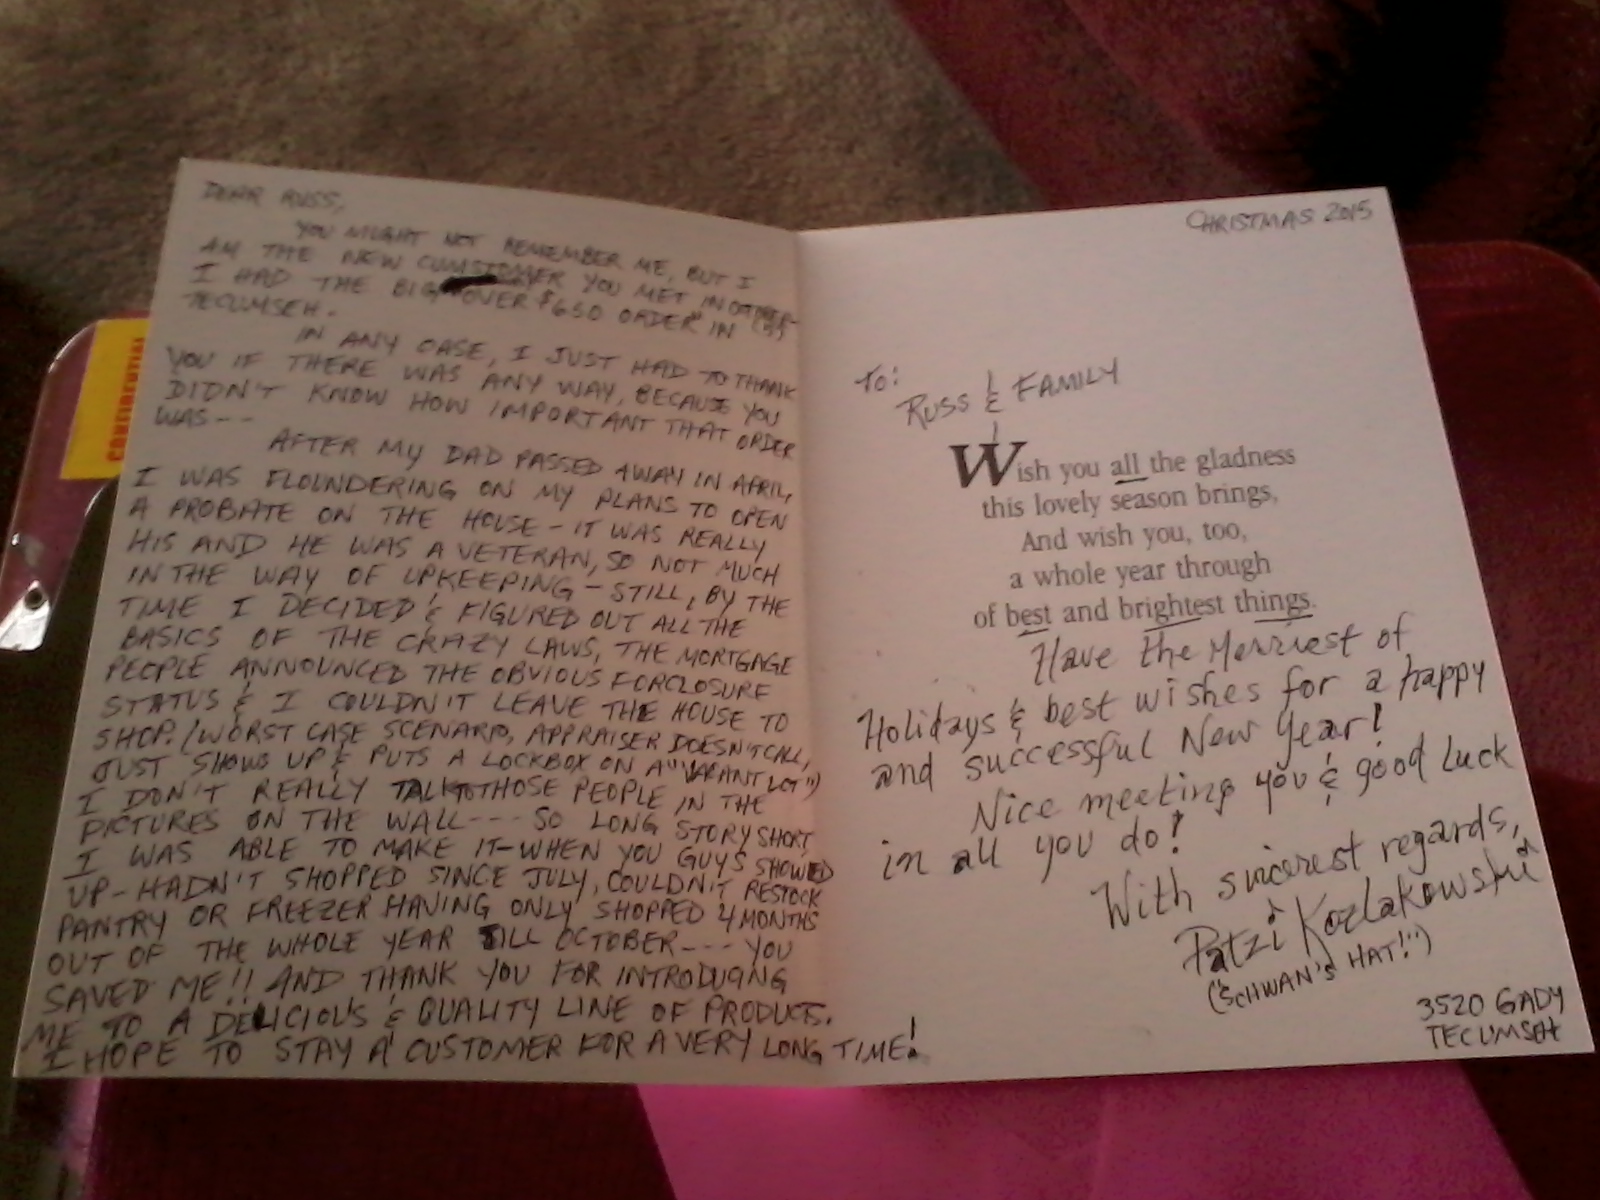 DEAR RUSS,
YOU MIGHT NOT REMEMBER ME, BUT I
AM THE NEW CUMSTOMER YOU MET IN OCTOBER-
I HAD THE BIG OVER $650 ORDER IN
TECUMSEH.
IN ANY CASE, I JUST HAD TO THANK
YOU IF THERE WAS ANY WAY, BECAUSE YOU
DIDN'T KNOW HOW IMPORTANT THAT ORDER
WAS--
AFTER MY DAD PASSED AWAY IN APRIL,
I WAS FLOUNDERING ON MY PLANS TO OPEN
A PROBATE ON THE HOUSE - IT WAS REALLY
HIS AND HE WAS A VETERAN, SO NOT MUCH
IN THE WAY OF UPKEEPING - STILL, BY THE
TIME I DECIDED & FIGURED OUT ALL THE
BASICS OF THE CRAZY LAWS, THE MORTGAGE
PEOPLE ANNOUNCED THE OBVIOUS FORCLOSURE
STATUS & I COULDN'T LEAVE THE HOUSE TO
SHOP. (WORST CASE SCENARIO, APPRAISER DOESN'T CALL,
JUST SHOWS UP & PUTS A LOCKBOX ON A "VACANT LOT")
I DON'T REALLY TALK TO THOSE PEOPLE IN THE
PICTURES ON THE WALL--- SO LONG STORY SHORT,
I WAS ABLE TO MAKE IT-WHEN YOU GUYS SHOWED
UP-HADN'T SHOPPED SINCE JULY, COULDN'T RESTOCK
PANTRY OR FREEZER HAVING ONLY SHOPPED 4 MONTHS
OUT OF THE WHOLE YEAR TILL OCTOBER---- YOU
SAVED ME!! AND THANK YOU FOR INTRODUCING
ME TO A DELICIOUS & QUALITY LINE OF PRODUCTS.
I HOPE TO STAY A CUSTOMER FOR A VERY LONG TIME!
CHRISTMAS 2015
TO:
RUSS & FAMILY
Wish you all the gladness
this lovely season brings,
And wish you, too,
a whole year through
of best and brightest things.
Have the Merriest of
Holidays & best wishes for a happy
and successful New Year!
Nice meeting you & good luck
in all you do!
With sincerest regards,
Patzi Kozlakowski
("SCHWAN'S HAT!")
3520 GADY
TECUMSEH
CONFIDENTIAL